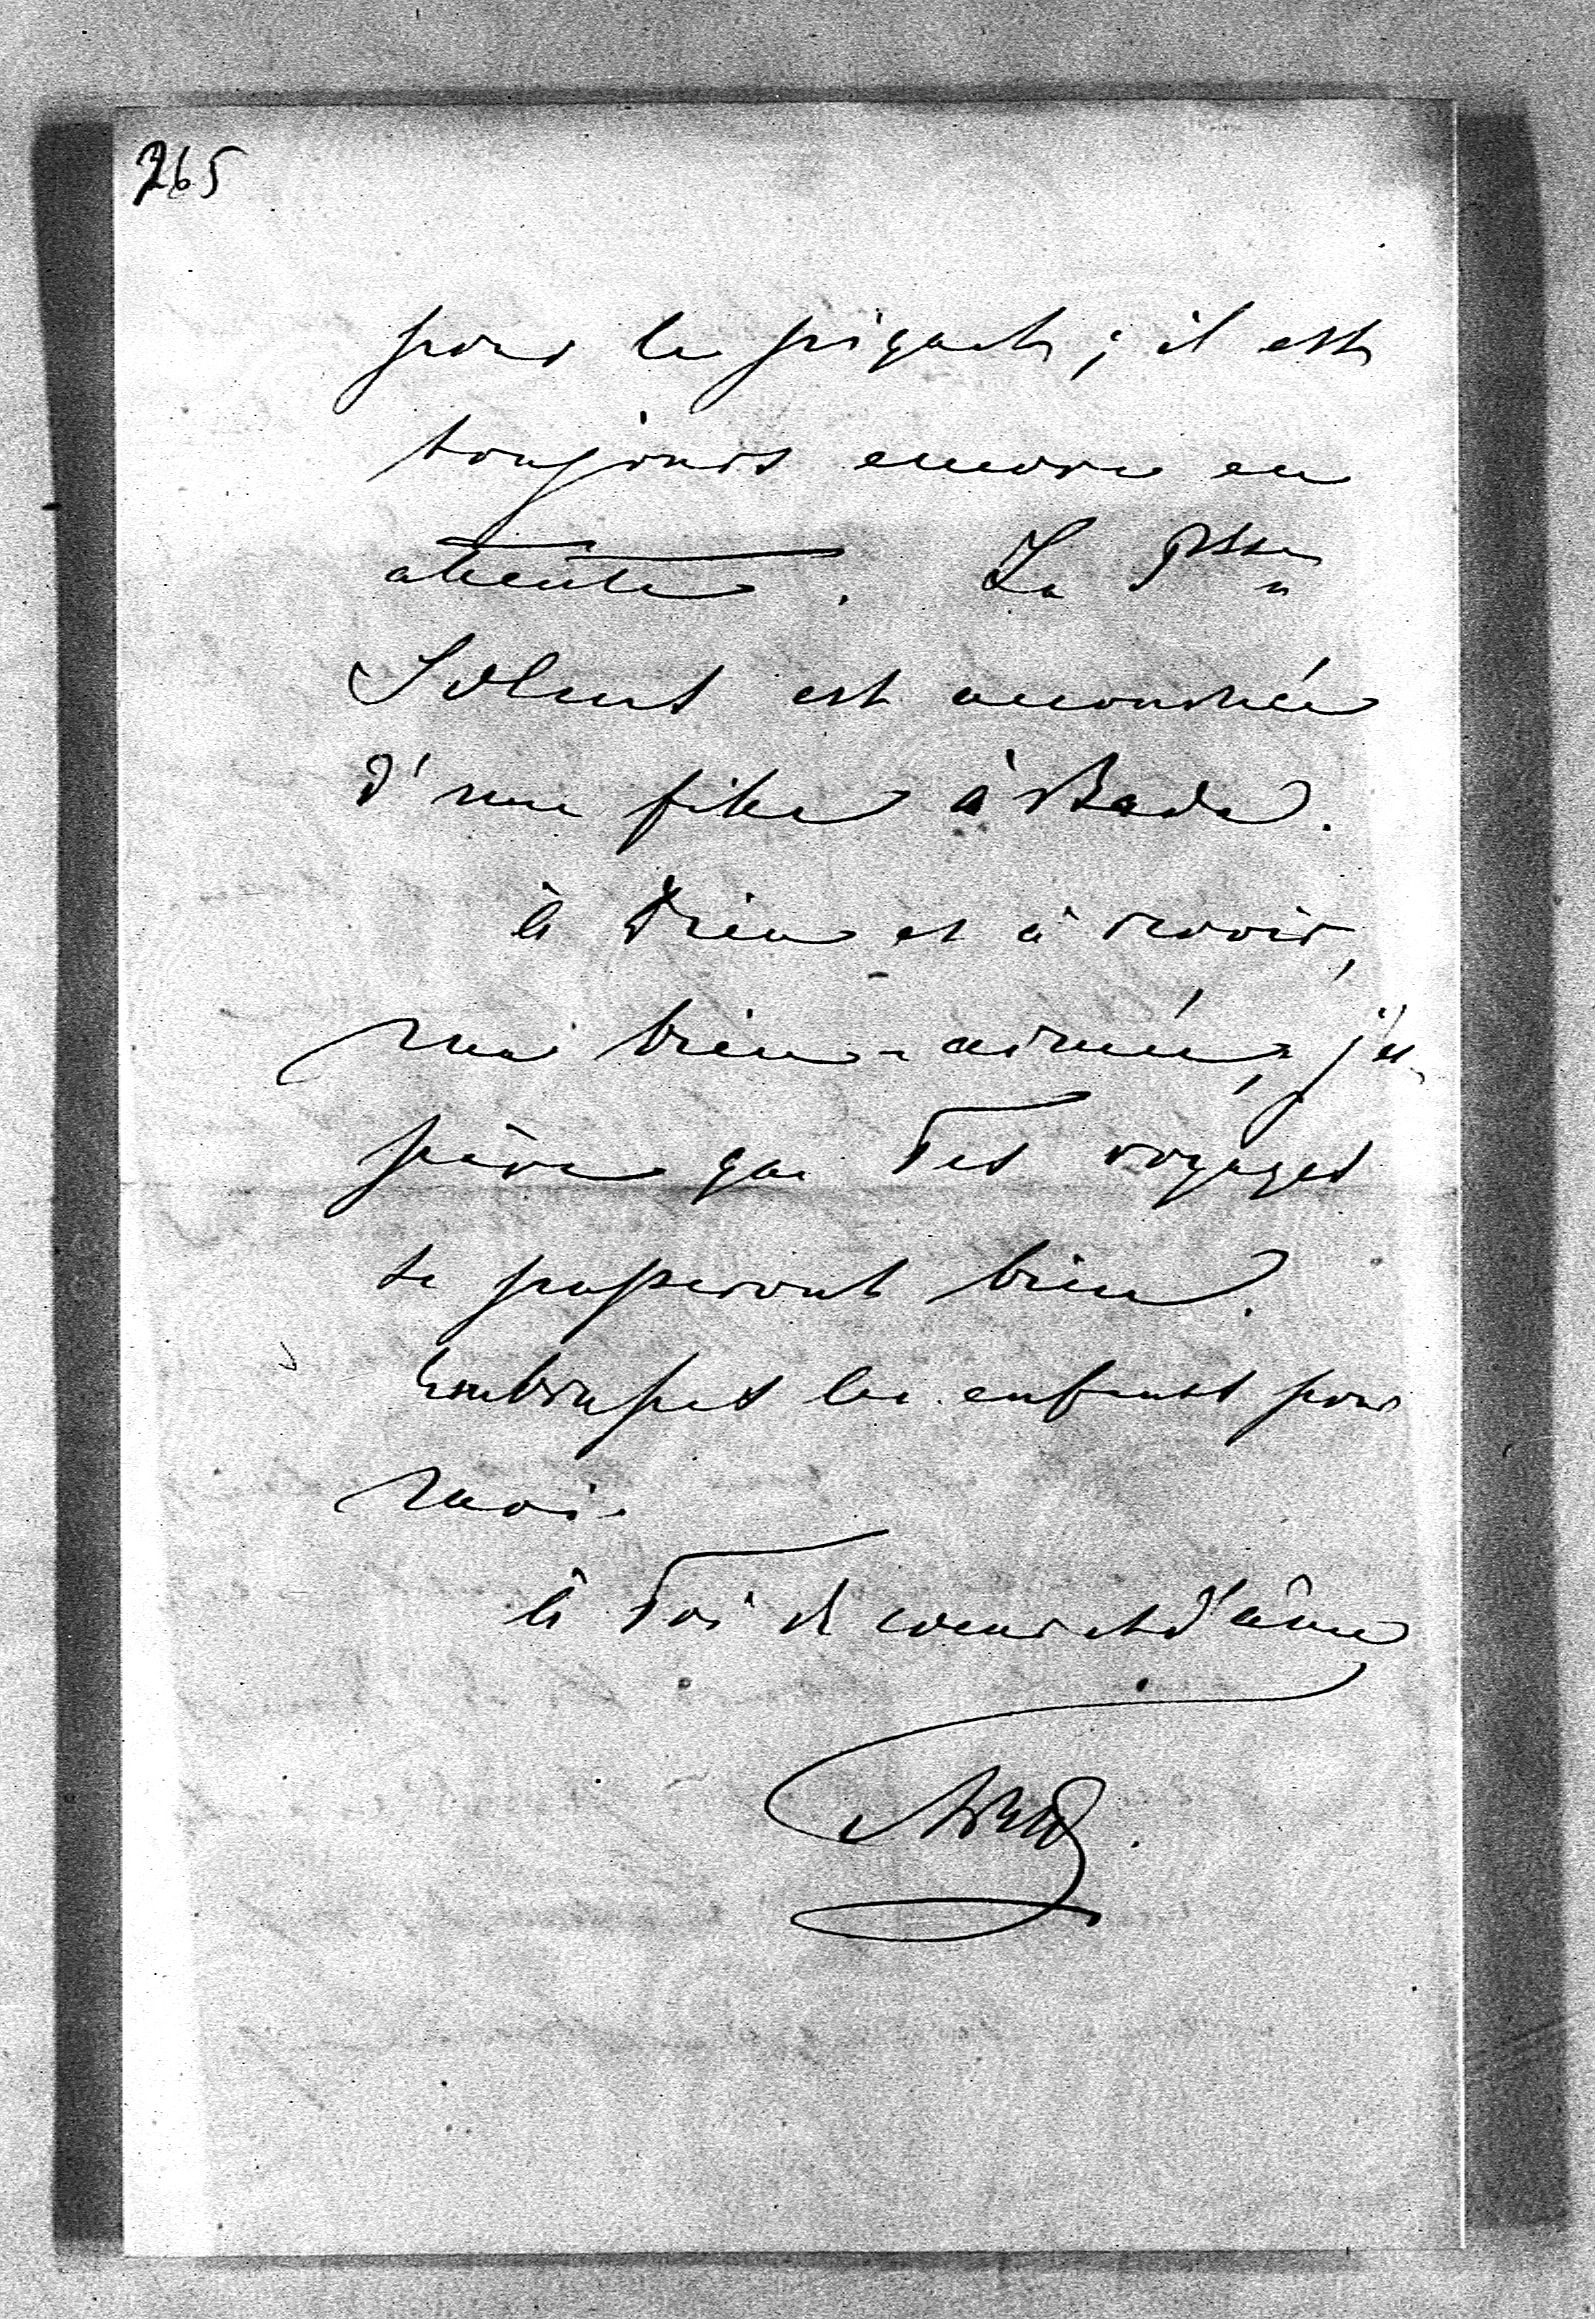 265
pour le piquet; il est
toujours encore en
attente. La Psse
Solms est accouchée
d'une fille à Bade.
à Dieu et à revoir,
ma bien-aimée, j'es-
père que Tes voyages
se passeront bien.
Embrasses les enfants pour
moi.
à Toi de coeur et d'âme